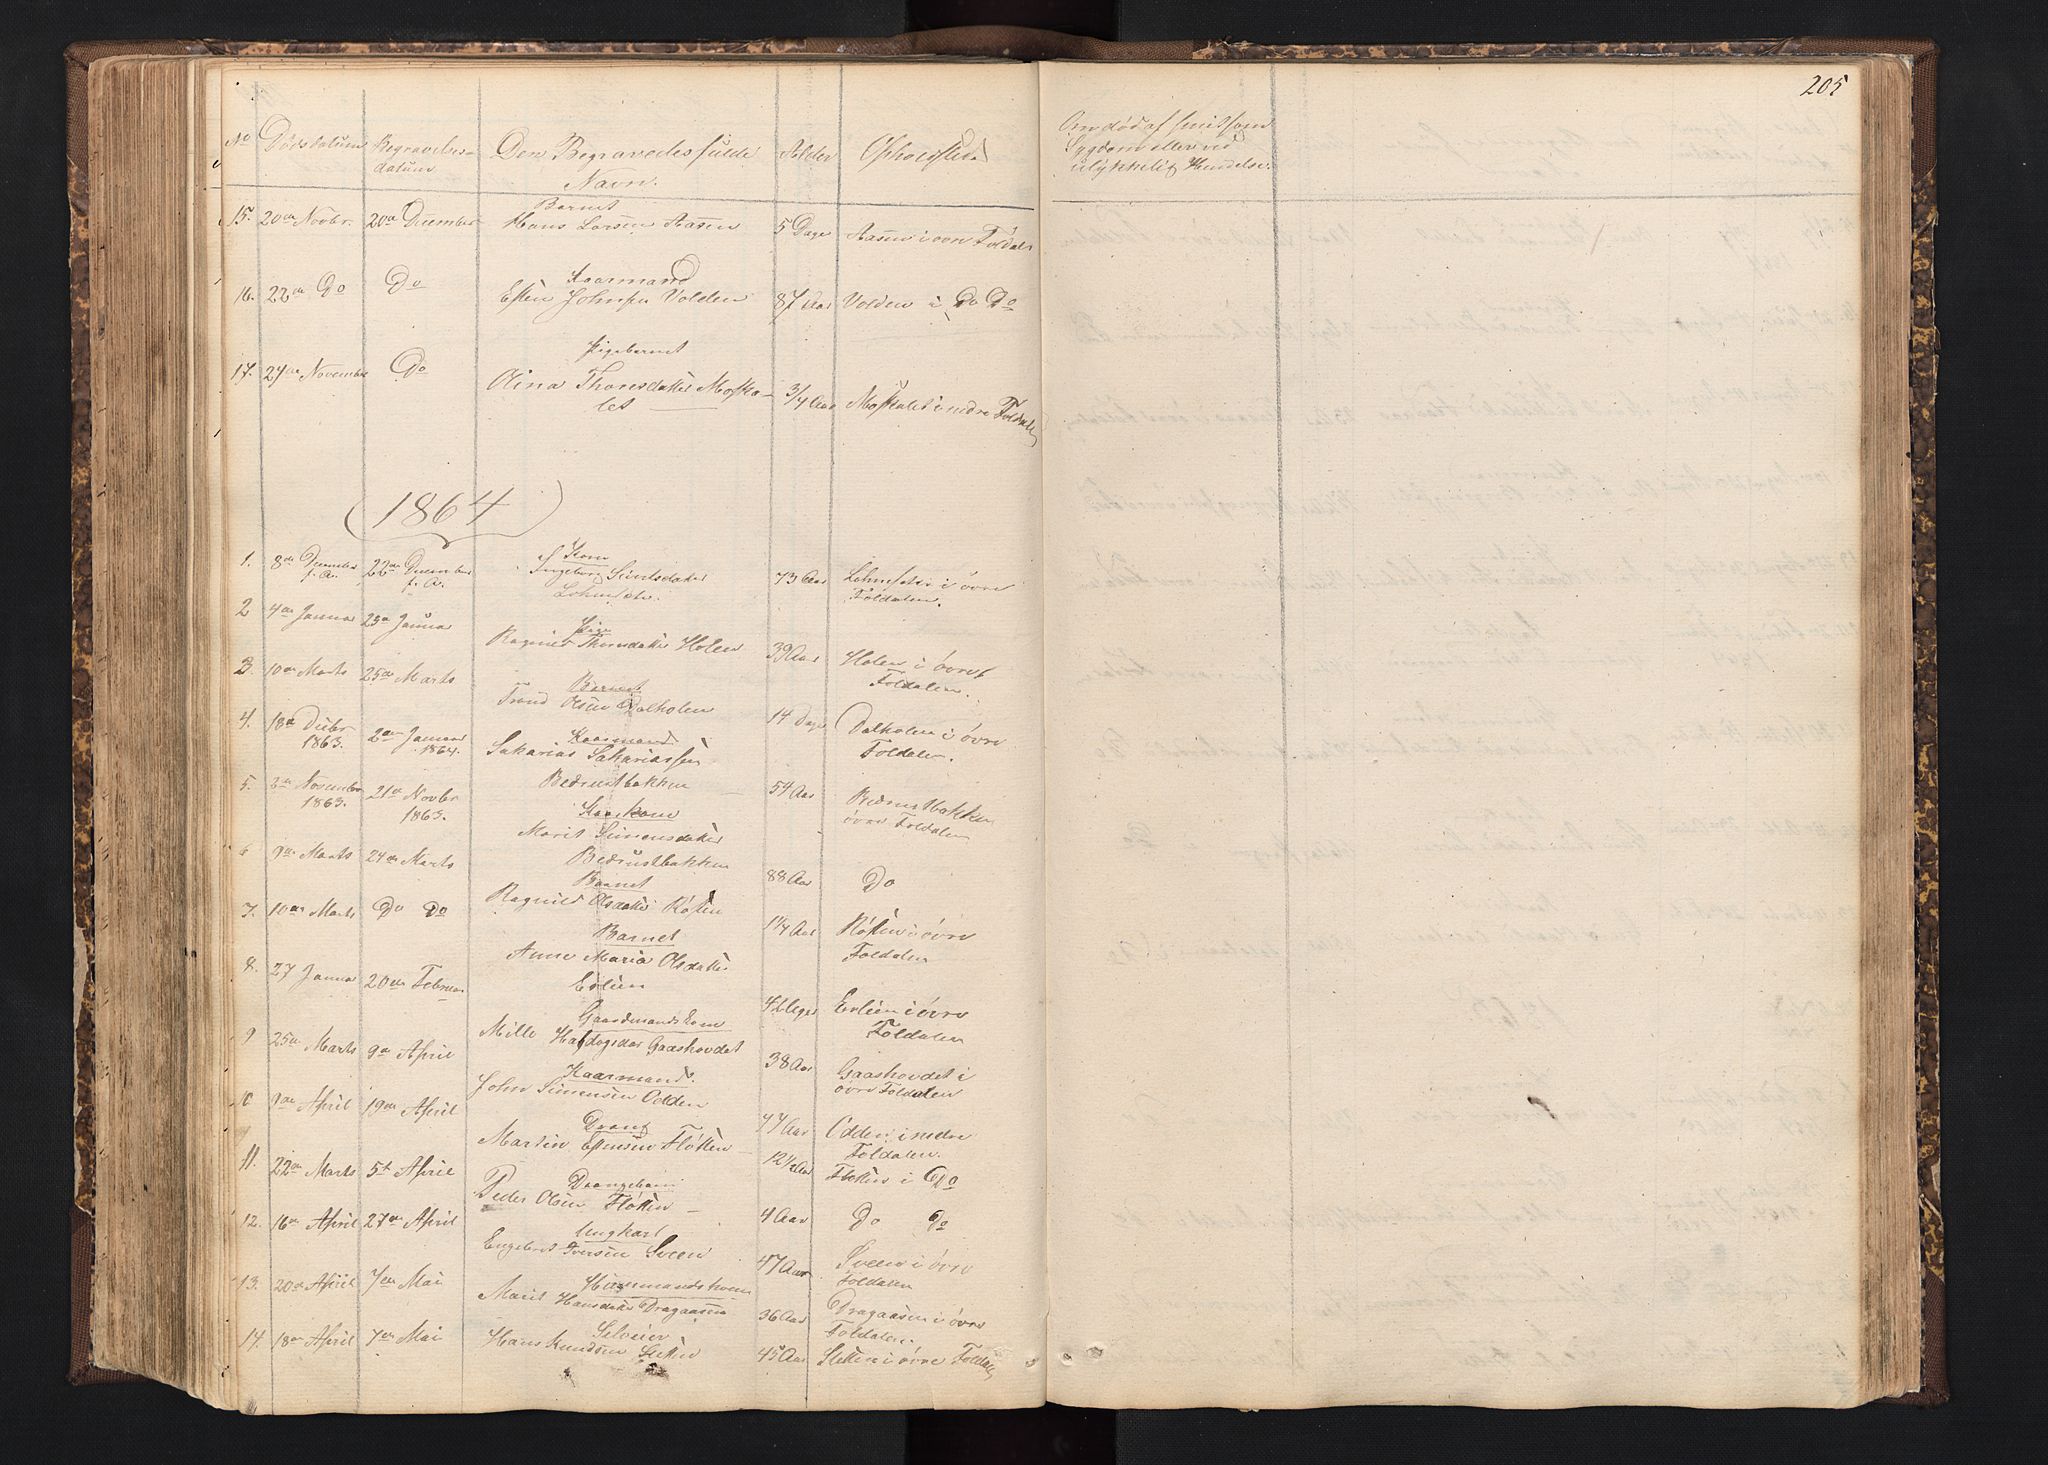 205
No Dødsdatum Begravelses- datum Den Begravedes fulde Navn. Alder Opholdsted
Om død af smitsom
Sygdom eller ved
ulykkelig Hendelse.
15. 20de Novbr. 20de December Barnet Hans Larsen Aasen 5 Dage Aasen i øvre Foldal
16. 22de Do Do Kaarmand Esten Johnsen Volden 87 Aar Volden i Do Do
17. 24de November Do Pigebarnet Olina Thoresdatter Moskalet 3/4 Aar Moskalet i nedre Foldal
(1864)
1. 8de December f. A. 22de December f. A. Kone Ingeborg Simensdatter 73 Aar i øvre Foldalen.
2 4de Januar 25de Januar Pige Ragnild Thoresdatter Holen 39 Aar Holen i øvre Foldalen.
3. 10de Marts 25de Marts Barnet Trond Olsen Dalholen 14 Dage Dalholen i øvre Foldalen.
4. 18de Decbr 1863. 2den Januar 1864. Kaarmand Sakarias Sakariassen Bedrustbakken 54 Aar Bedrustbakken øvre Foldalen
5. November 1863. 21de Novbr 1863. Kaarkone Marit Simensdatter Bedrustbakken 88 Aar Do
6 9de Marts 24de Marts Barnet Ragnild Olsdatter Røsten 1 1/4 Aar Røsten i øvre Foldalen
7. 10de Marts Do Do Barnet Anne Maria Olsdatter Erlien 4 Uger Erlien i øvre Foldalen
8. 27 Januar 20de Februar Gaardmandskone Mille Gaashovdet 38 Aar Gaashovdet i øvre Foldalen
9 25de Marts 9de April Kaarmand. John Simensen Odden 77 Aar Odden i nedre Foldalen.
10 9de April 19de April Dreng Martin Estensen Fløtten 12 1/2 Aar Fløtten i Do
11. 22de Marts 5te April Drengebarn Peder Olsen Fløtten 4 Aar Do Do
12. 16de April 27de April Ungkarl Engebret Iversen Sveen 47 Aar Sveen i øvre Foldalen
13. 20de April 7de Mai Huusmandskone Marit Hansdatter Dragaasen 36 Aar Dragaasen i øvre Foldalen.
14. 18de April 7de Mai Selveier Hans Knudsen Sletten 45 Aar Sletten i øvre Foldal